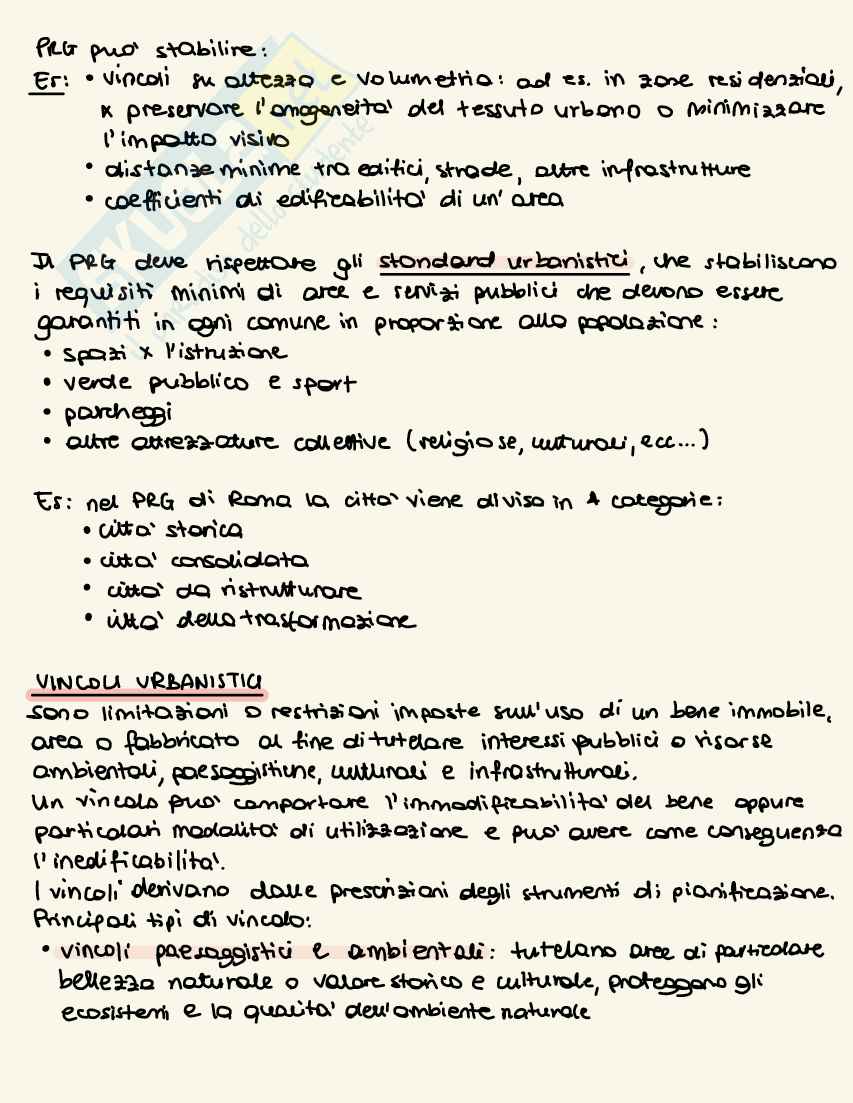 PRG può stabilire:
Es: • vincoli su altezza e volumetria: ad es. in zone residenziali,
x preservare l'omogeneità del tessuto urbano o minimizzare
l'impatto visivo
• distanze minime tra edifici, strade, altre infrastrutture
• coefficienti di edificabilità di un'area
Il PRG deve rispettare gli standard urbanistici, che stabiliscono
i requisiti minimi di aree e servizi pubblici che devono essere
garantiti in ogni comune in proporzione alla popolazione:
• spazi x l'istruzione
• verde pubblico e sport
• parcheggi
• altre attrezzature collettive (religiose, culturali, ecc...)
Es: nel PRG di Roma la città viene divisa in 4 categorie:
• città storica
• città consolidata
• città da ristrutturare
• città della trasformazione
VINCOLI URBANISTICI
sono limitazioni o restrizioni imposte sull'uso di un bene immobile,
area o fabbricato al fine di tutelare interessi pubblici o risorse
ambientali, paesaggistiche, culturali e infrastrutturali.
Un vincolo può comportare l'immodificabilità del bene oppure
particolari modalità di utilizzazione e può avere come conseguenza
l'inedificabilità.
I vincoli derivano dalle prescrizioni degli strumenti di pianificazione.
Principali tipi di vincolo:
• vincoli paesaggistici e ambientali: tutelano aree di particolare
bellezza naturale o valore storico e culturale, proteggono gli
ecosistemi e la qualità dell'ambiente naturale